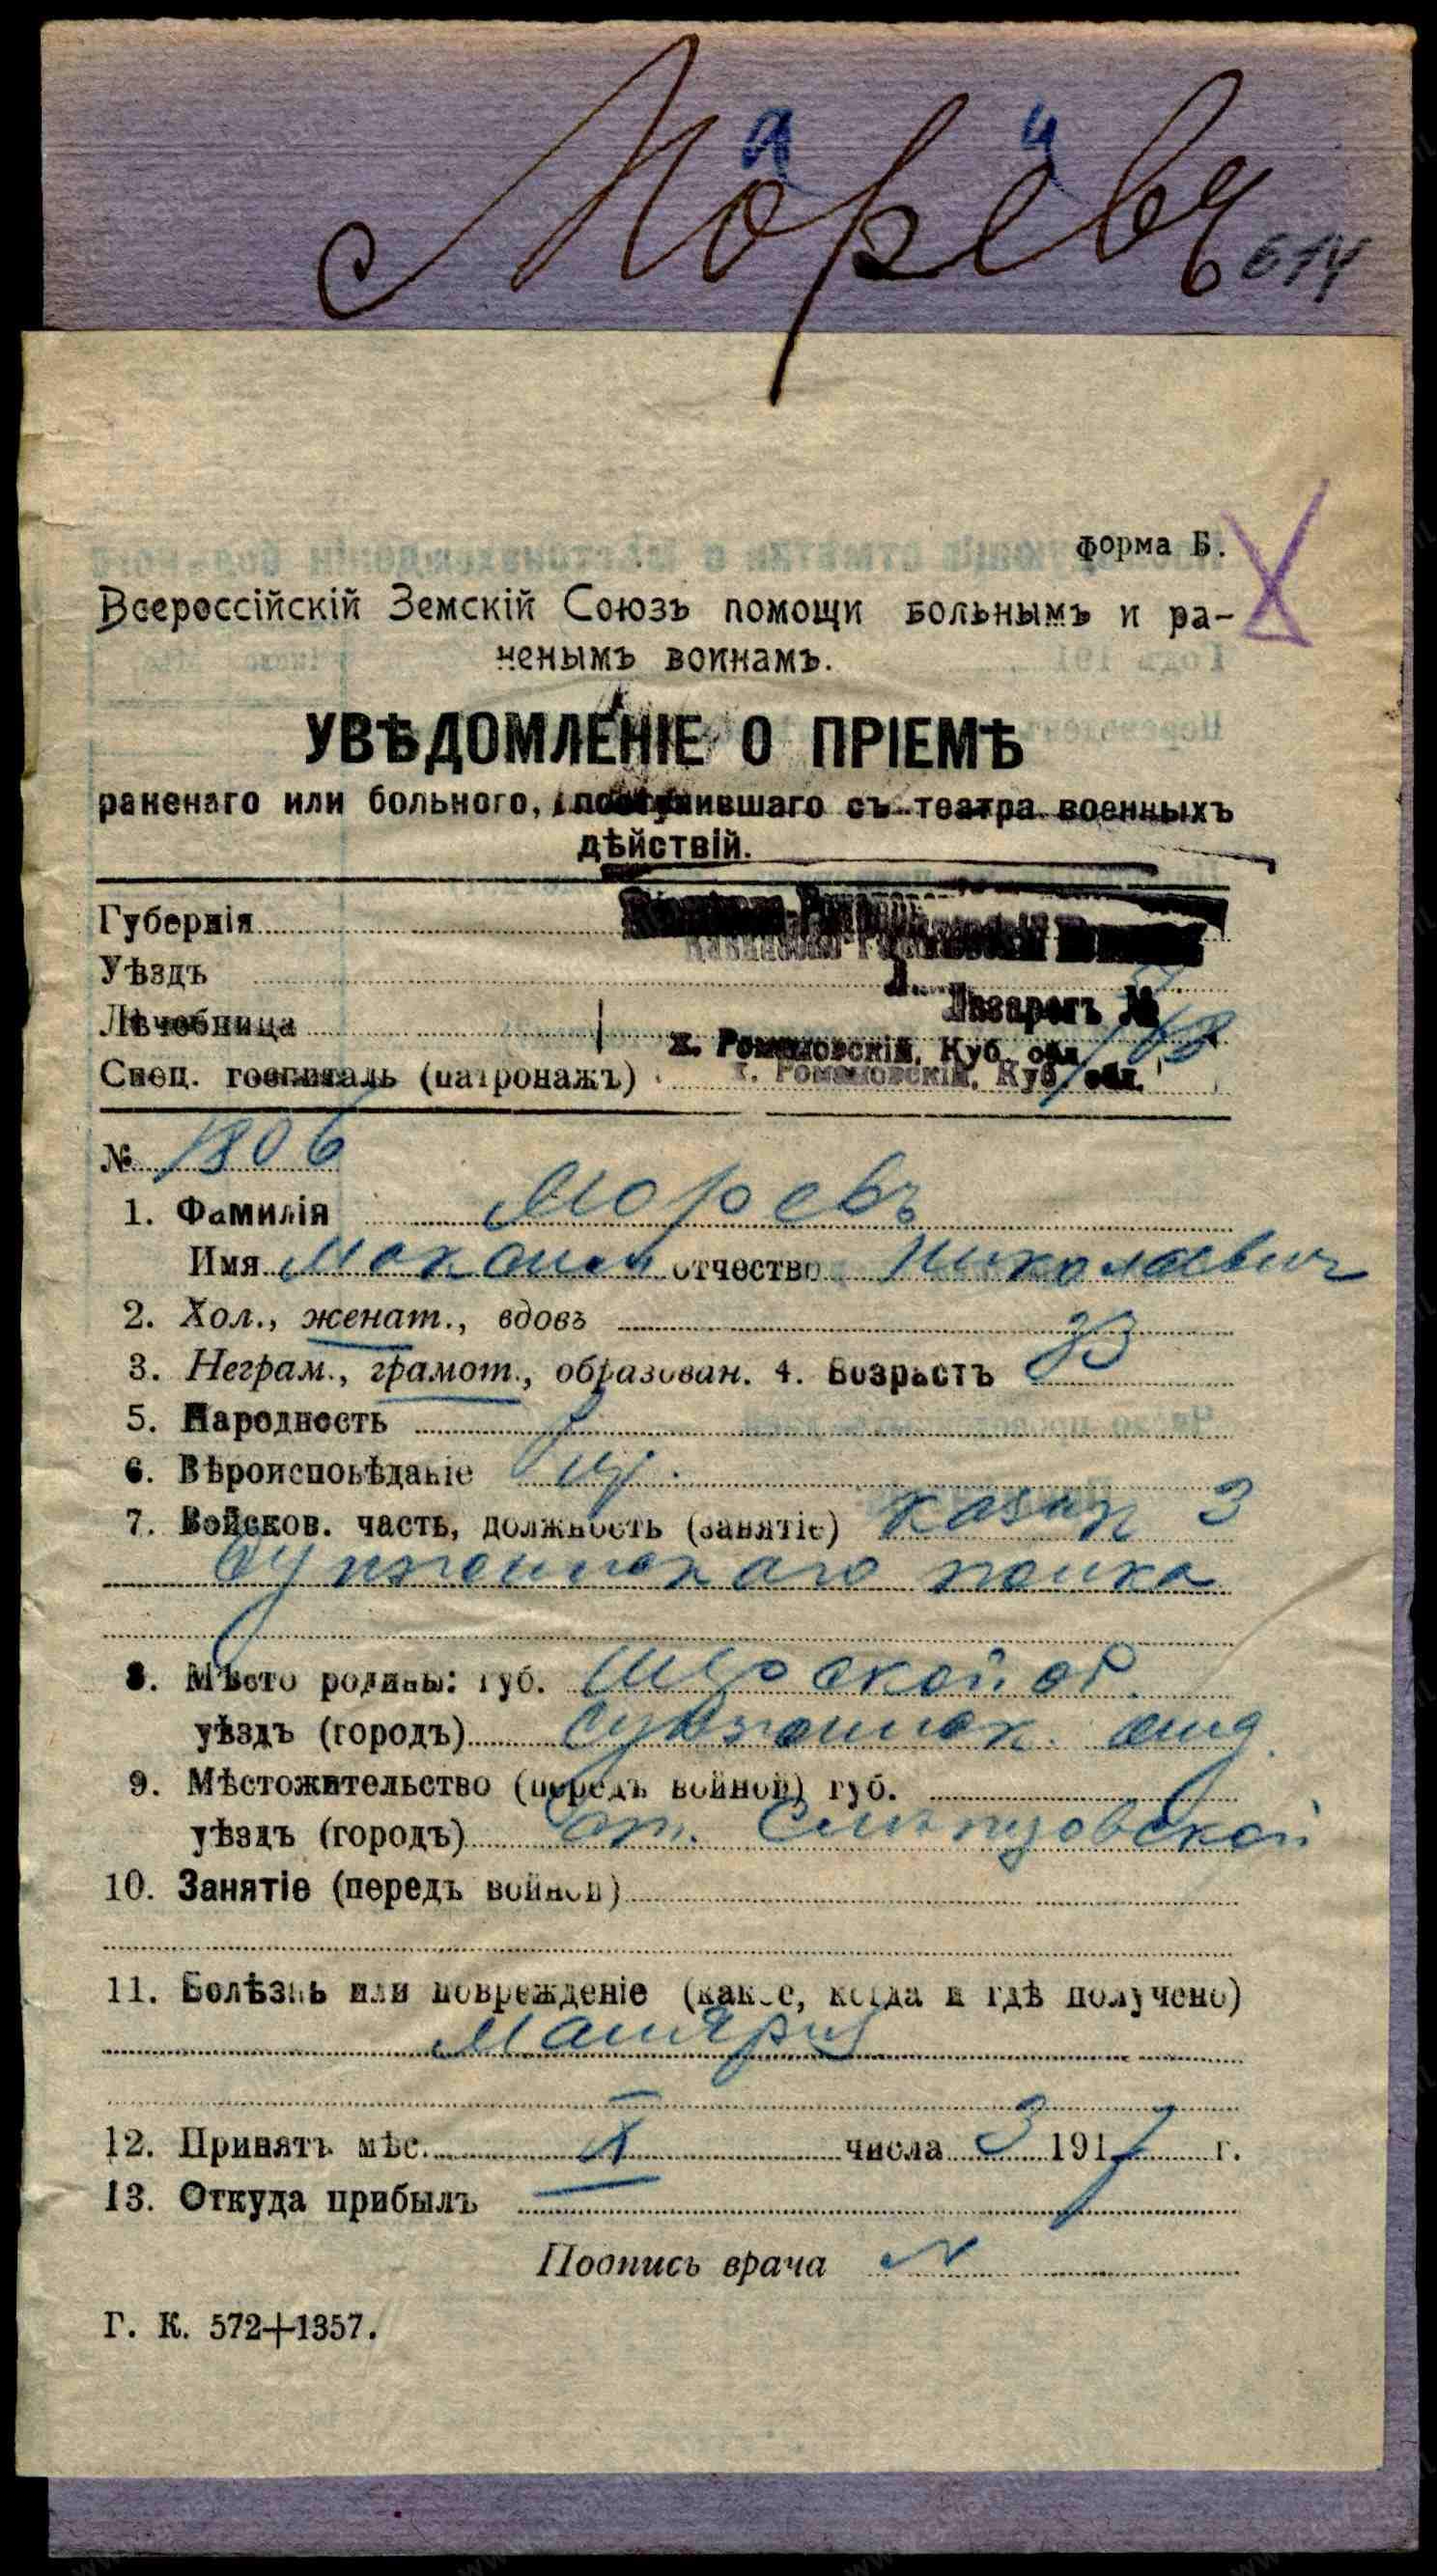 Моревъ
а и
614
форма Б.
Всероссійскій Земскій Союзъ помощи больнымъ и ра-
ненымъ воинамъ.
УВѢДОМЛЕНІЕ О ПРІЕМѢ
раненаго или больного, поступившаго съ театра военныхъ
дѣйствій.
Губернія
Уѣздъ
Лазаретъ №
Лѣчебница
х. Романовскій, Куб. обл.
Спец. госпиталь (патронажъ) х. Романовскій, Куб. обл.
№ 1806
1. Фамилія Моревъ
Имя отчество Николаевич
2. Хол., женат., вдовъ
3. Неграм., грамот., образован. 4. Возрастъ 33
5. Народность
6. Вѣроисповѣданіе
7. Войсков. часть, должность (занятіе) казак 3
Сунженскаго полка
8. Мѣсто родины: губ. Терской об.
уѣздъ (городъ) Сунженск. отд.
9. Мѣстожительство (передъ войной) губ.
уѣздъ (городъ) ст. Слепцовской
10. Занятіе (передъ войной)
11. Болѣзнь или поврежденіе (какое, когда и гдѣ получено)
Малярія
12. Принятъ мѣс. X числа 3 1917 г.
13. Откуда прибылъ
Подпись врача
Г. К. 572+1357.